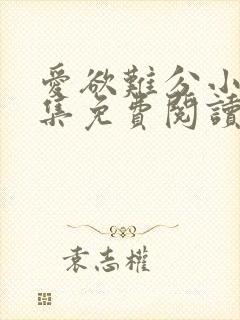 愛欲難分小
集免費閱讀
袁志權